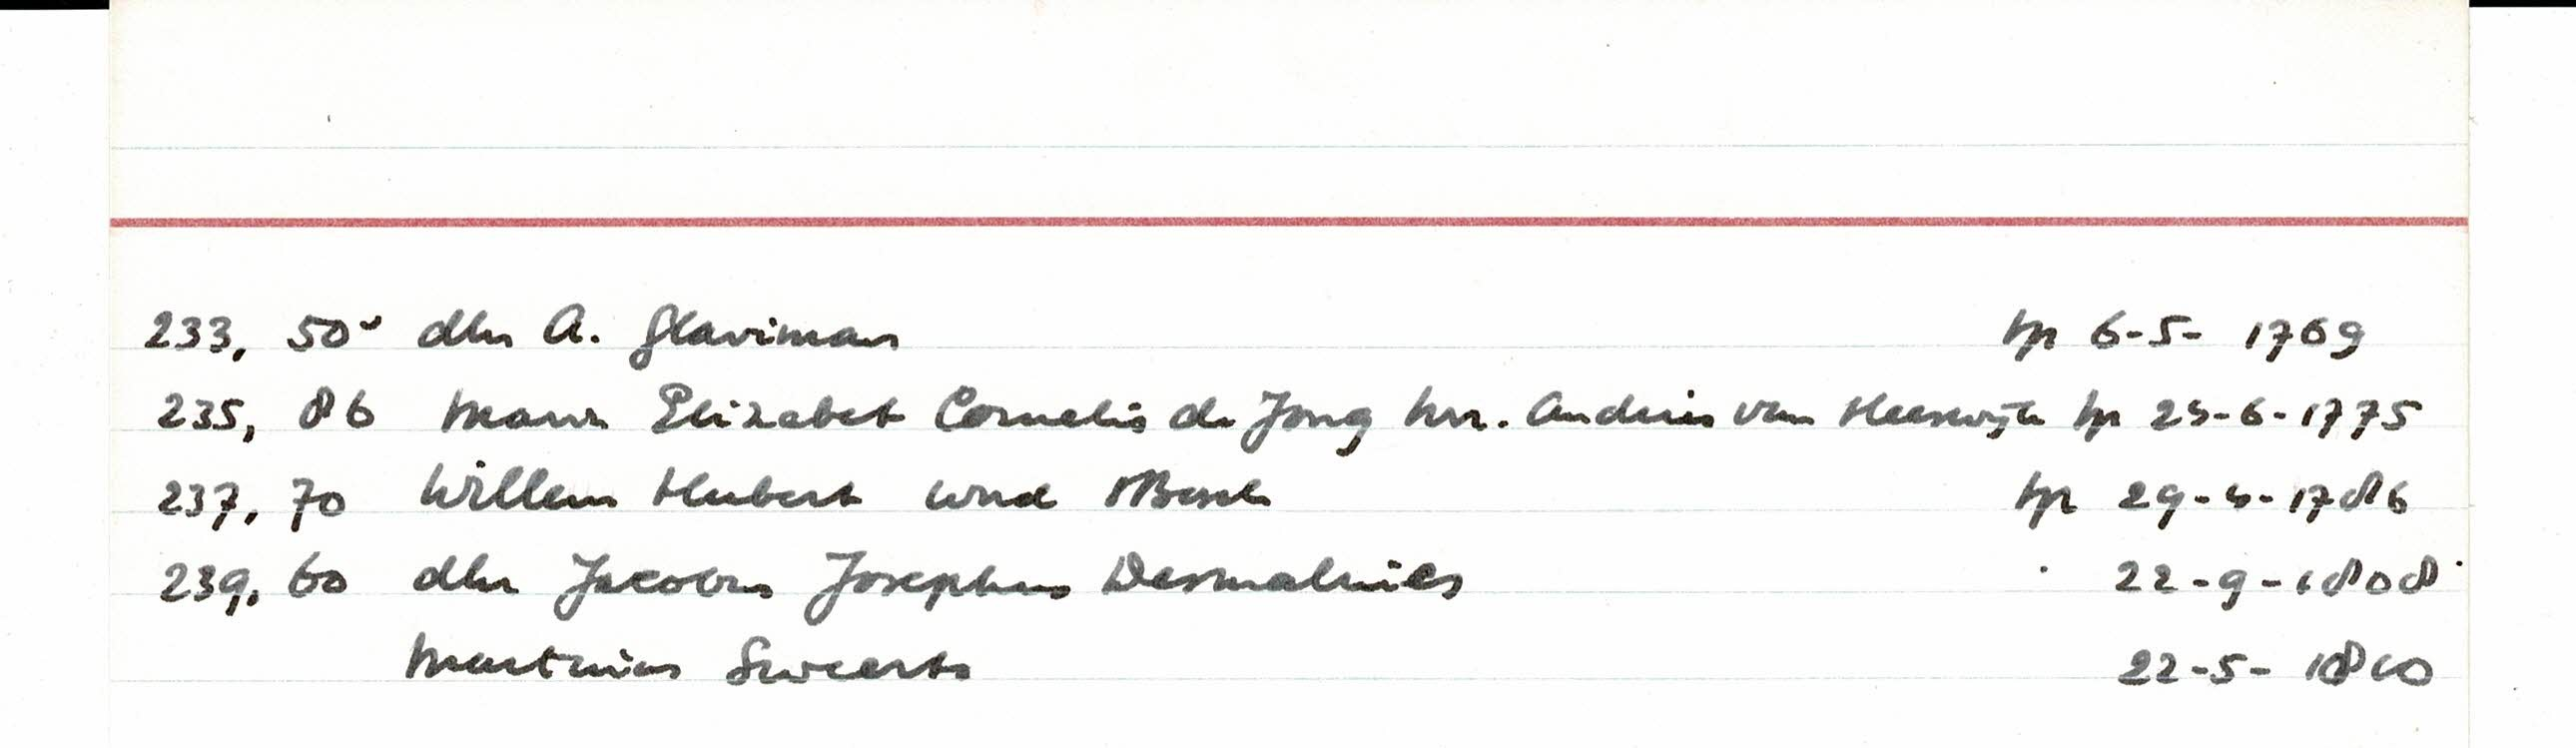 233, 50v dhr A. Glaviman tp 6-5- 1769
235, 86 Maria Elizabet Cornelis de Jong hvr. Andries van Heeswijk tp 23-6-1775
237, 70 Willem Hubert wnd tp 29-4-1786
239, 60 dhr Jacobus Josephus 22-9-1808
Martinus Sweerts 22-5- 1810